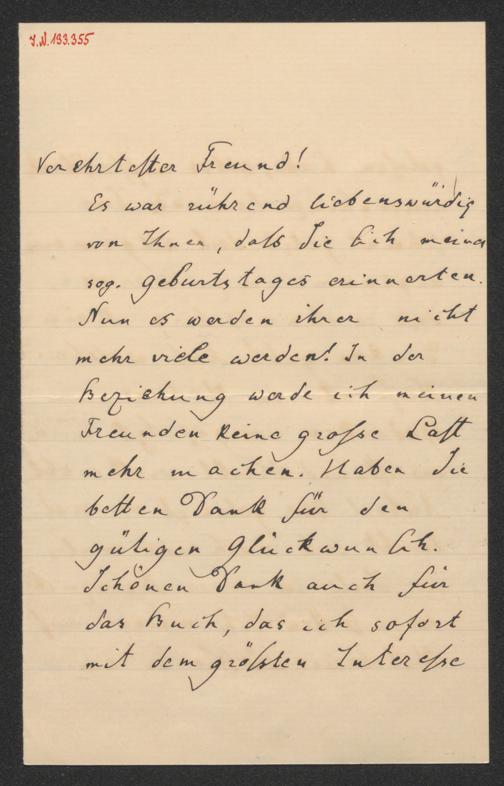 I.N. 193.355
Verehrtester Freund!
Es war rührend liebenswürdig
von Ihnen, daß Sie sich meines
sog. Geburtstages erinnerten.
Nun es werden ihrer nicht
mehr viele werden! In der
Beziehung werde ich meinen
Freunden keine große Last
mehr machen. Haben Sie
besten Dank für den
gütigen Glückwunsch.
Schönen Dank auch für
das Buch, das ich sofort
mit dem größten Interesse